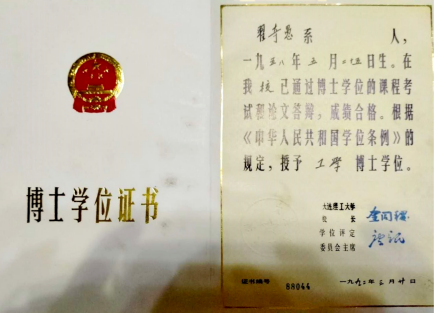 博士学位证书
系 人，
一九五八年五月 日生。在
我校已通过博士学位的课程考
试和论文答辩，成绩合格。根据
《中华人民共和国学位条例》的
规定，授予 工学 博士学位。
大连理工大学
校 长
学位评定
委员会主席
证书编号 88044 一九九二年三月廿日